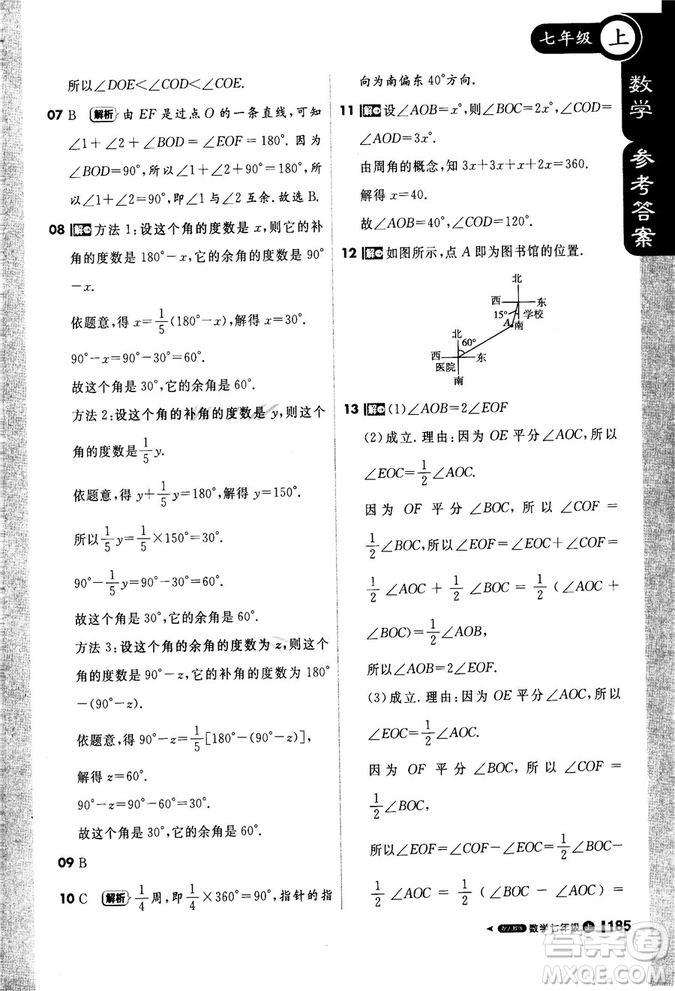 七年级 上
数学 参考答案
所以∠DOE<∠COD<∠COE.
07 B 解析 由 EF 是过点 O 的一条直线,可知
∠1+∠2+∠BOD=∠EOF=180°. 因为
∠BOD=90°,所以∠1+∠2+90°=180°,所
以∠1+∠2=90°,即∠1 与∠2 互余.故选 B.
08 解 方法 1:设这个角的度数是 x,则它的补
角的度数是 180°-x,它的余角的度数是 90°
-x.
依题意,得 x=1/5(180°-x),解得 x=30°.
90°-x=90°-30°=60°.
故这个角是 30°,它的余角是 60°.
方法 2:设这个角的补角的度数是 y,则这个
角的度数是1/5y.
依题意,得 y+1/5y=180°,解得 y=150°.
所以1/5y=1/5×150°=30°.
90°-1/5y=90°-30°=60°.
故这个角是 30°,它的余角是 60°.
方法 3:设这个角的余角的度数为 z,则这个
角的度数是 90°-z,它的补角的度数是 180°
-(90°-z).
依题意,得 90°-z=1/5[180°-(90°-z)],
解得 z=60°.
90°-z=90°-60°=30°.
故这个角是 30°,它的余角是 60°.
09 B
10 C 解析 1/4周,即1/4×360°=90°,指针的指
向为南偏东 40°方向.
11 解 设∠AOB=x°,则∠BOC=2x°,∠COD=
∠AOD=3x°.
由周角的概念,知 3x+3x+x+2x=360.
解得 x=40.
故∠AOB=40°,∠COD=120°.
12 解 如图所示,点 A 即为图书馆的位置.
北
西 东
15° 学校
A 南
北
60°
西 东
医院
南
13 解 (1)∠AOB=2∠EOF
(2)成立.理由:因为 OE 平分∠AOC,所以
∠EOC=1/2∠AOC.
因为 OF 平分 ∠BOC,所以 ∠COF =
1/2∠BOC,所以∠EOF=∠EOC+∠COF=
1/2∠AOC + 1/2∠BOC = 1/2(∠AOC +
∠BOC)=1/2∠AOB,
所以∠AOB=2∠EOF.
(3)成立.理由:因为 OE 平分∠AOC,所以
∠EOC=1/2∠AOC.
因为 OF 平分 ∠BOC,所以 ∠COF =
1/2∠BOC,
所以∠EOF=∠COF-∠EOC=1/2∠BOC-
数学七年级 上 185
答案圈
MXQE.COM